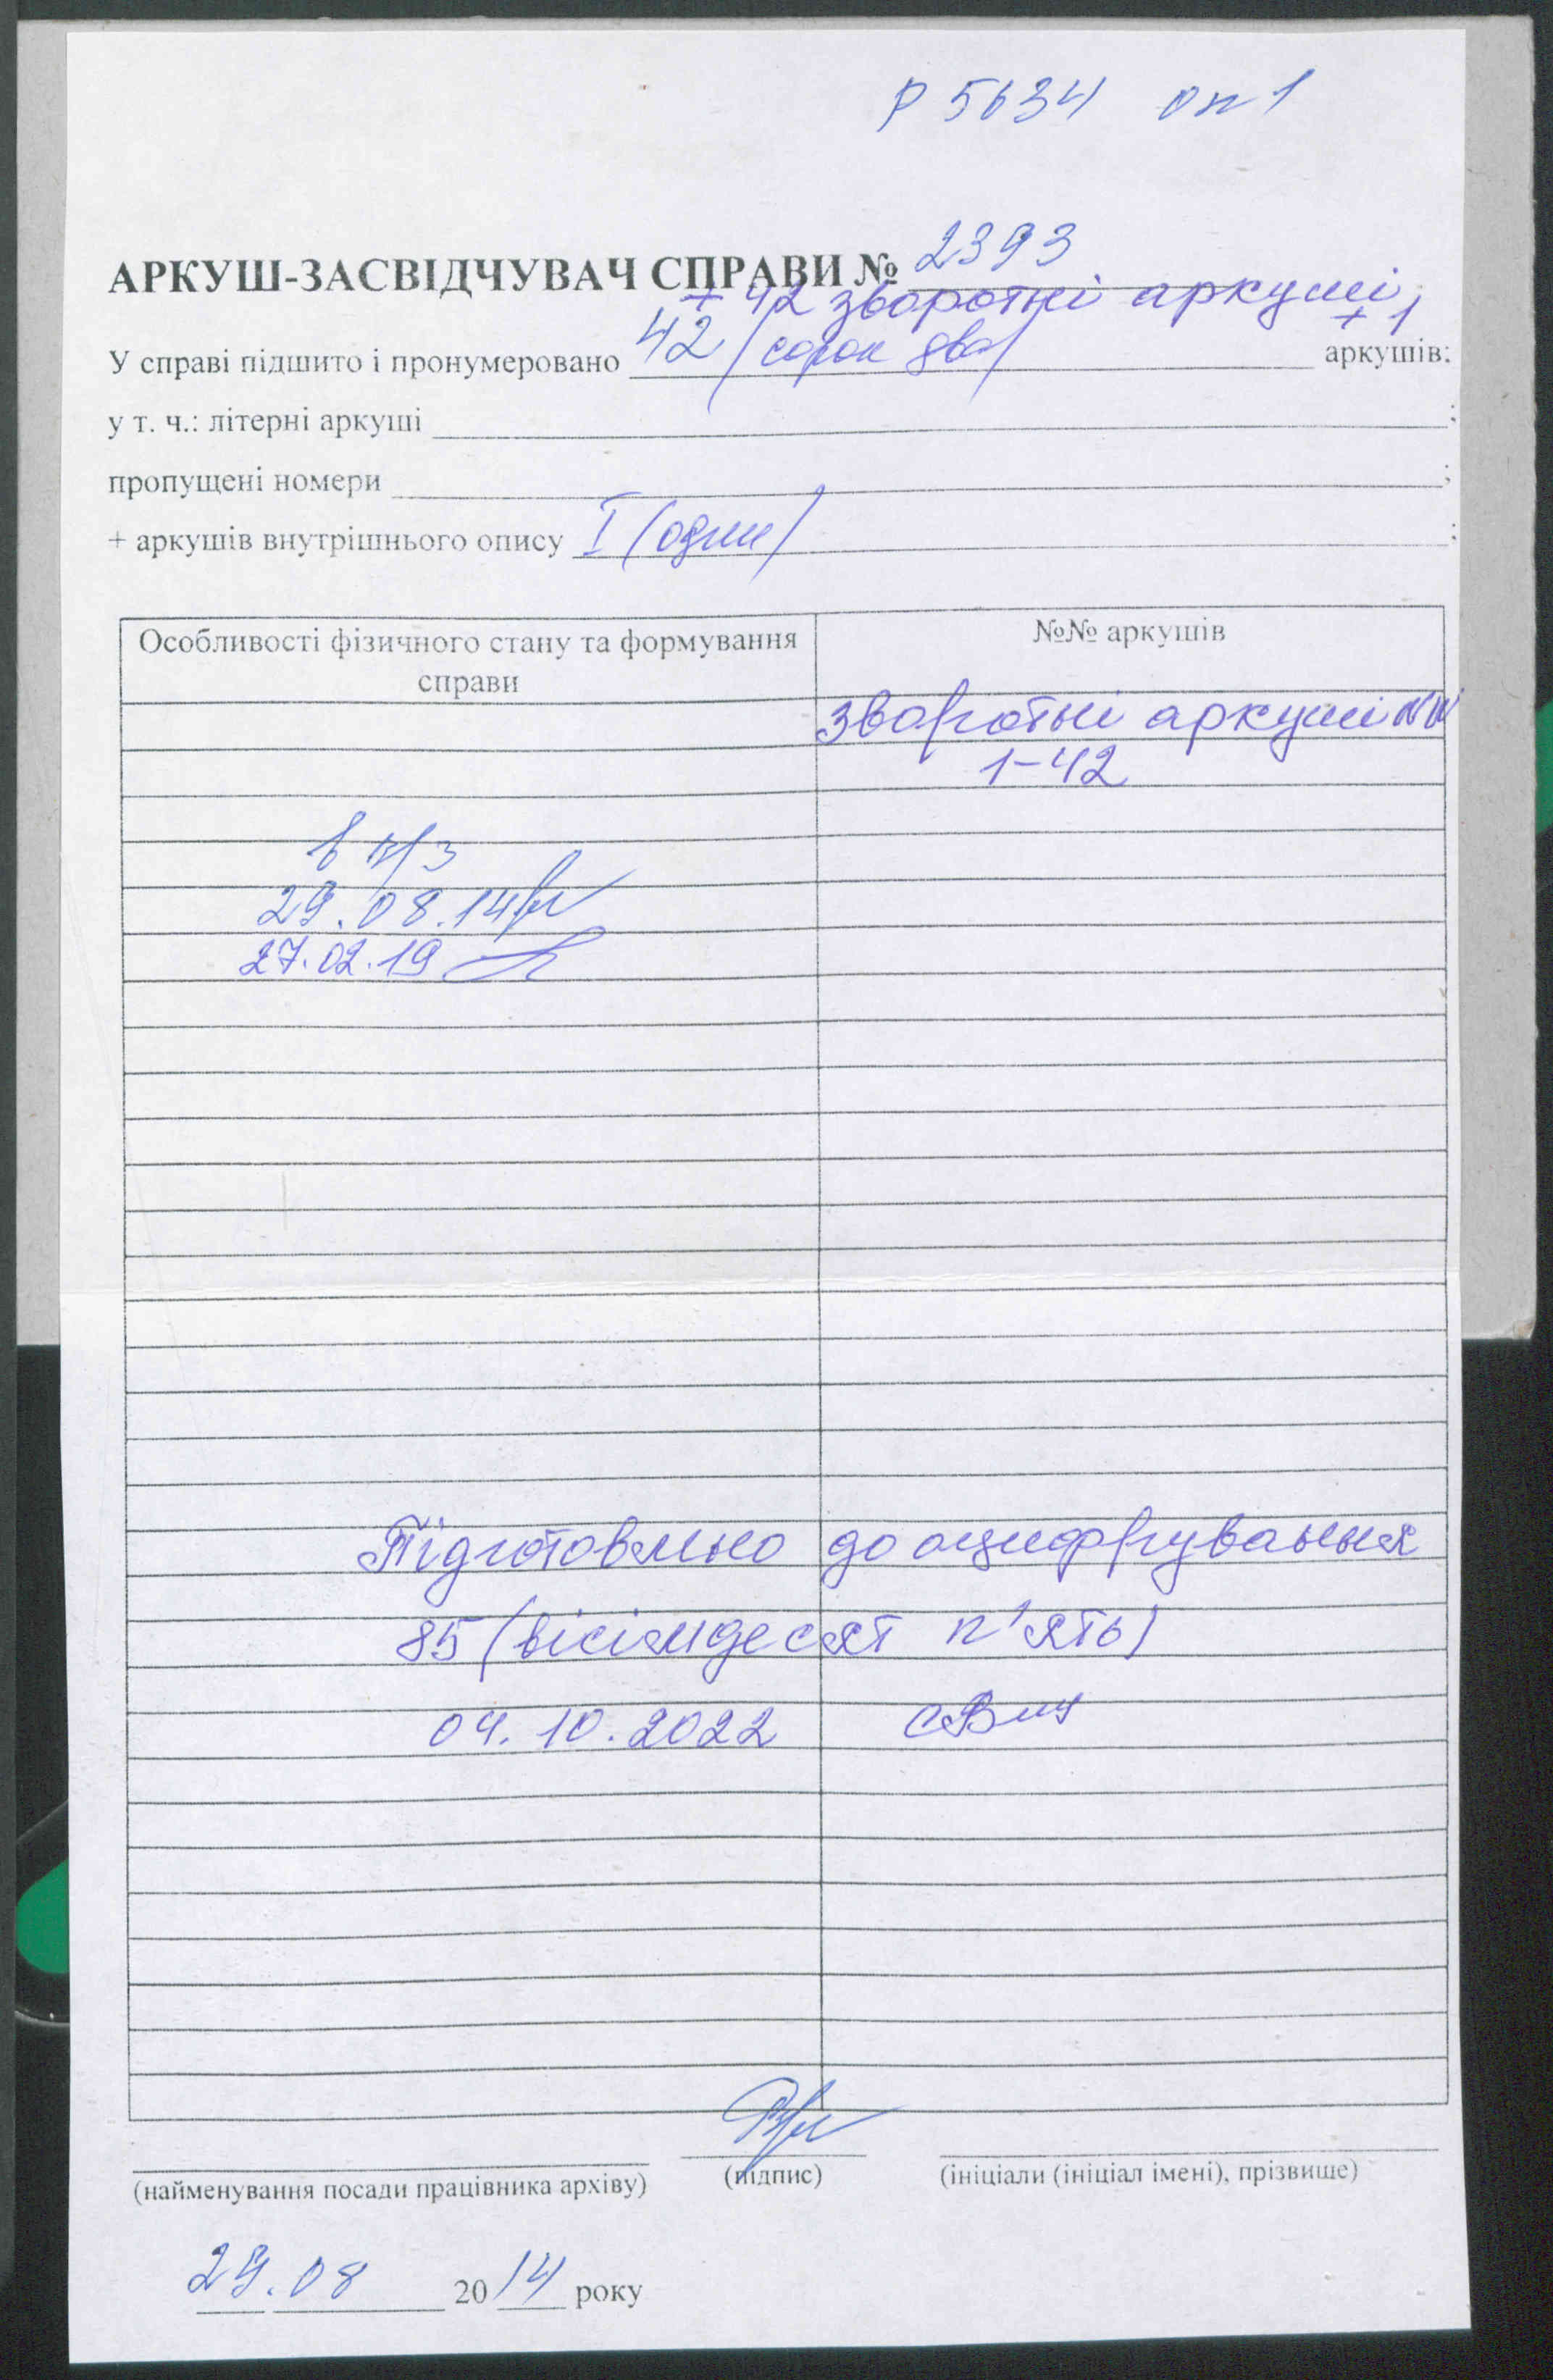 Р 5634 оп 1
АРКУШ-ЗАСВІДЧУВАЧ СПРАВИ № 2393
+ 42 зворотні аркуші,
+ 1
У справі підшито і пронумеровано 42 (сорок два) аркушів;
у т. ч.: літерні аркуші ;
пропущені номери ;
+ аркушів внутрішнього опису I (один) ;
Особливості фізичного стану та формування справи
№№ аркушів
зворотні аркуші №№
1-42
29.08.14
27.02.19
Підготовлено до оцифрування
85 (вісімдесят п'ять)
04.10.2022
(найменування посади працівника архіву) (підпис) (ініціали (ініціал імені), прізвище)
29.08 2014 року